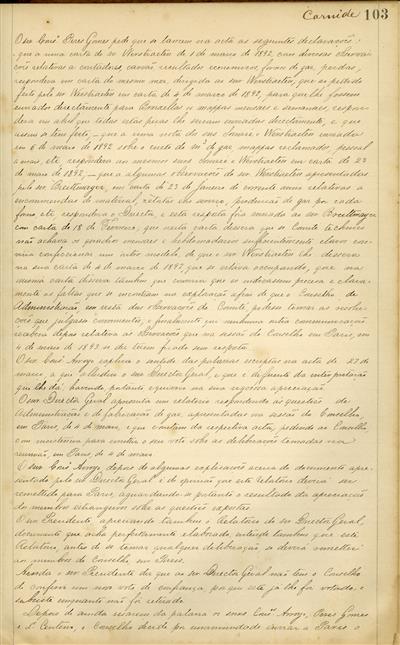 Carnide 103
O Snr. Consº. Peres Gomes pede que se lavrem na acta as seguintes declarações:
que a uma carta do snr Weinbacken de 1 de março de 1892, com diversas observa-
ções relativas a contadores, carvão, resultados economicos, fornos de gaz, perdas,
respondera em carta do mesmo mez, dirigida ao snr; que ao pedido
feito pelo snr em carta de 4 de março de 1892, para que lhe fossem
enviados directamente para Bruxellas os mappas mensaes e semanaes, respon-
dera em abril que todas estas peças lhe seriam enviadas directamente, e que
assim se tem feito, — que a uma nota dos snrs e enviada
em 6 de maio de 1892 sobre o custo do m³ de gaz, mappas reclamados, pessoal
a mais, etc, respondera aos mesmos snrs e em carta de 23
de maio de 1892, — que a algumas observações do snr apresentadas
pelo snr em carta de 23 de Janeiro do corrente anno relativas a
encommendas de material, relatorios do serviço, producção de gaz por cada
forno, etc, respondera o Director, e esta resposta fôra enviada ao snr
com carta de 18 de Fevereiro, que nesta carta dissera que se o Comité technico
não achava os quadros mensaes e hebdomadarios sufficientemente claros con-
viria confeccionar um outro modelo, de que o snr lhe dissera
na sua carta de 4 de março de 1892 que se estava occupando, que na
mesma carta dissera tambem que convem que se indicassem precisa e clara-
mente as faltas que se encontram na exploração afim de que o Conselho de
Administração, em vista das observações do Comité, podesse tomar as resolu-
ções que julgasse convenientes, e finalmente que nenhuma outra communicação
recebera depois relativa ás observações que na sessão do Conselho em Paris, em
4 de maio de 1893 se diz terem ficado sem resposta.
O Snr. Consº. Arroyo explica o sentido das palavras exaradas na acta de 27 de
março, a que alludira o snr Director Geral, e que é differente da interpretação
que lhe dá, havendo, portanto equivoco na sua rigorosa apreciação.
O Snr Director Geral apresenta um relatorio respondendo ás questões de
Administração e de fabricação de gaz, apresentadas na sessão do Conselho
em Paris, de 4 de maio, e que constam da respectiva acta, pedindo ao Conselho,
com insistencia para emittir o seu voto sobre as deliberações tomadas na
reunião, em Paris, de 4 de maio.
O Snr. Consº. Arroyo, depois de algumas explicações acerca do documento apre-
sentado pelo snr Director Geral, é de opinião que este Relatorio deveria ser
remettido para Paris, aguardando-se portanto o resultado da apreciação
dos membros estrangeiros sobre as questões expostas.
O Snr Presidente, apreciando tambem o Relatorio do snr Director Geral,
documento que acha perfeitamente elaborado, entende tambem que este
Relatorio, antes de se tomar qualquer deliberação, se deveria remetter
aos membros do Conselho em Paris.
Accorda o snr Presidente diz que ao snr Director Geral não tem o Conselho
de conferir um novo voto de confiança, porque este já lhe foi votado, e
subsiste emquanto não for retirado.
Depois de ainda usarem da palavra os snrs Consº. Arroyo, Peres Gomes
e Dr Centeno, o Conselho decide por unanimidade enviar a Paris o